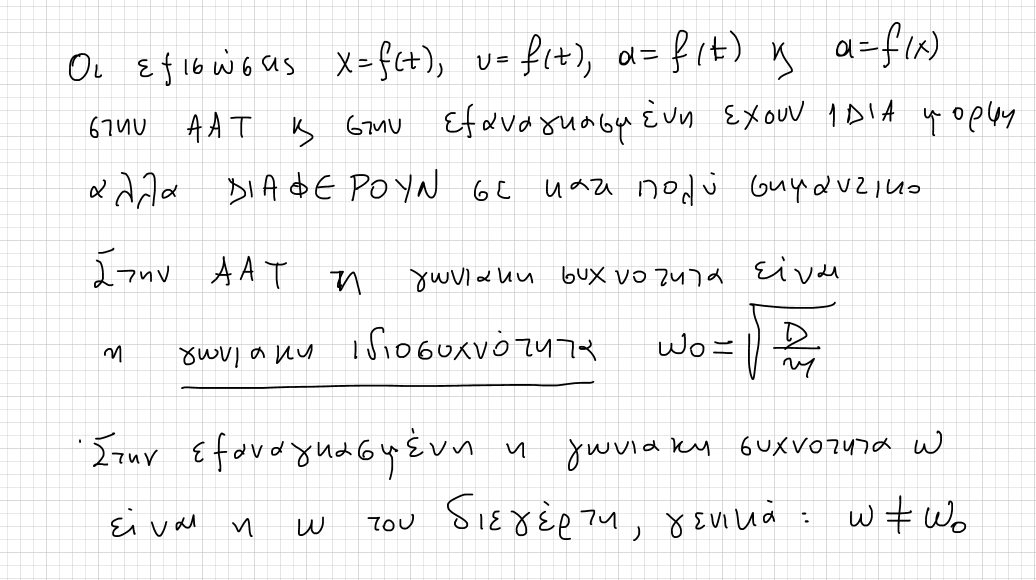 Οι εξισώσεις x=f(t), υ=f(t), α=f(t) κ α=f(x)
στην ΑΑΤ κ στην εξαναγκασμένη εχουν ΙΔΙΑ μορφη
αλλα ΔΙΑΦΕΡΟΥΝ σε κατι πολύ σημαντικο
Στην ΑΑΤ η γωνιακη συχνοτητα είναι
η γωνιακη ιδιοσυχνότητα ω₀=√(D/m)
Στην εξαναγκασμένη η γωνιακη συχνοτητα ω
είναι η ω του διεγέρτη, γενικά : ω≠ω₀